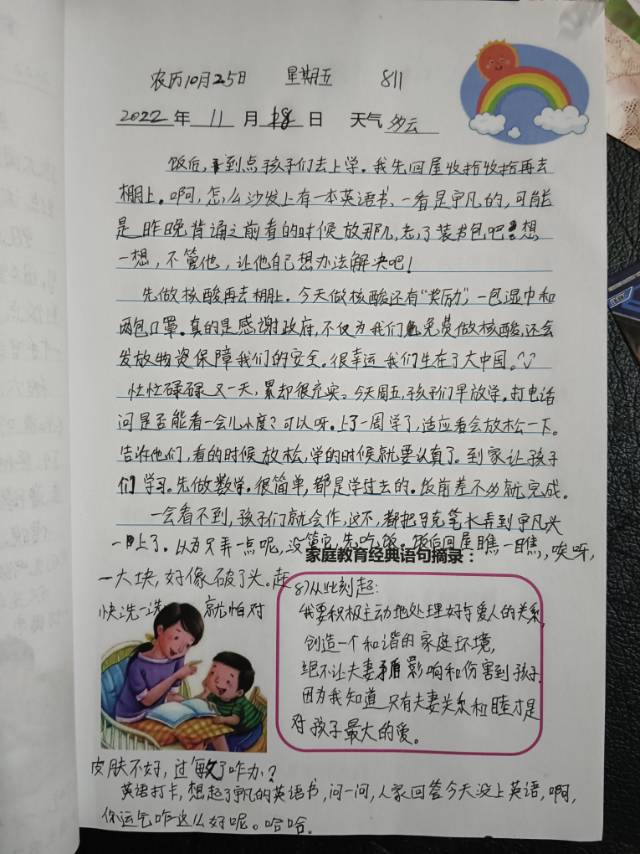 农历10月25日 星期五 811
2022年 11 月 18 日 天气 多云
饭后,到点孩子们去上学。我先回屋收拾收拾再去
棚上。啊,怎么沙发上有一本英语书,一看是宇凡的,可能
是昨晚背诵之前看的时候放那儿,忘了装书包吧!想
一想,不管他,让他自己想办法解决吧!
先做核酸再去棚上。今天做核酸还有“奖励”,一包湿巾和
两包口罩。真的是感谢政府,不仅为我们免费做核酸,还会
发放物资保障我们的安全。很幸运我们生在了大中国。
忙忙碌碌又一天,累却很充实。今天周五,孩子们早放学。打电话
问是否能看一会儿小度?可以呀。上了一周学了,适应着会放松一下。
告诉他们,看的时候放松,学的时候就要认真了。到家让孩子
们学习。先做数学。很简单,都是学过去的。饭前差不多就完成。
一会看不到,孩子们就会作,这不,都把马克笔水弄到宇凡头
上了。以为只弄一点呢,没管它,先吃饭。饭后回屋瞧一瞧,唉呀,
一大块,好像破了头。赶
快洗一洗 就怕对
家庭教育经典语句摘录:
87从此刻起:
我要积极主动地处理好与爱人的关系,
创造一个和谐的家庭环境,
绝不让夫妻矛盾影响和伤害到孩子。
因为我知道只有夫妻关系和睦才是
对孩子最大的爱。
皮肤不好,过敏了咋办?
英语打卡,想起了宇凡的英语书,问一问,人家回答今天没上英语,啊,
你运气咋这么好呢。哈哈。